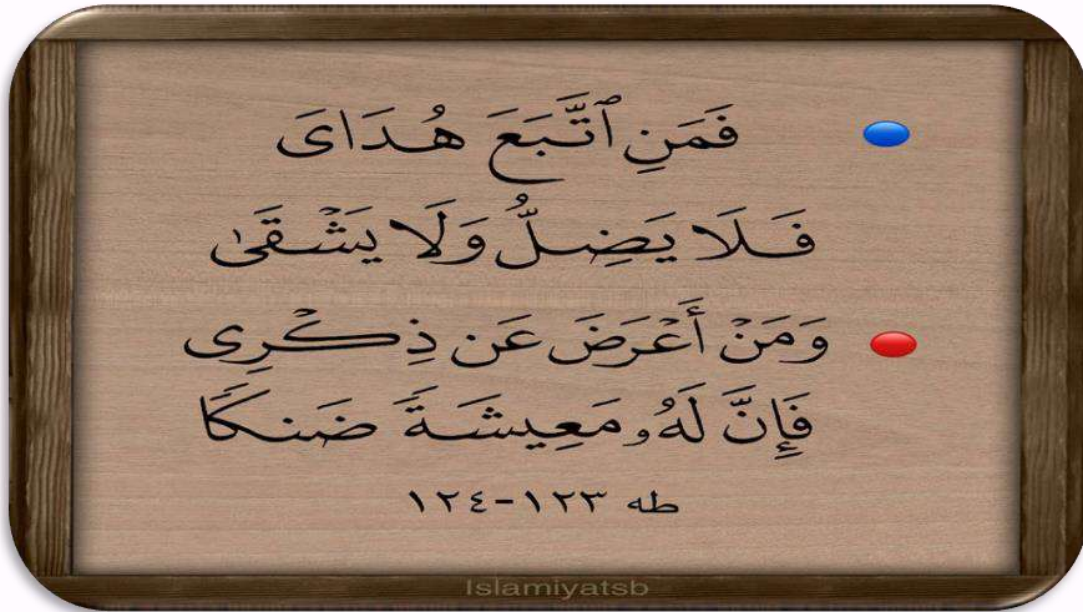 فَمَنِ ٱتَّبَعَ هُدَاىَ
فَلَا يَضِلُّ وَلَا يَشْقَىٰ
وَمَنْ أَعْرَضَ عَن ذِكْرِى
فَإِنَّ لَهُۥ مَعِيشَةً ضَنكًا
طه ١٢٣-١٢٤
Islamiyatsb